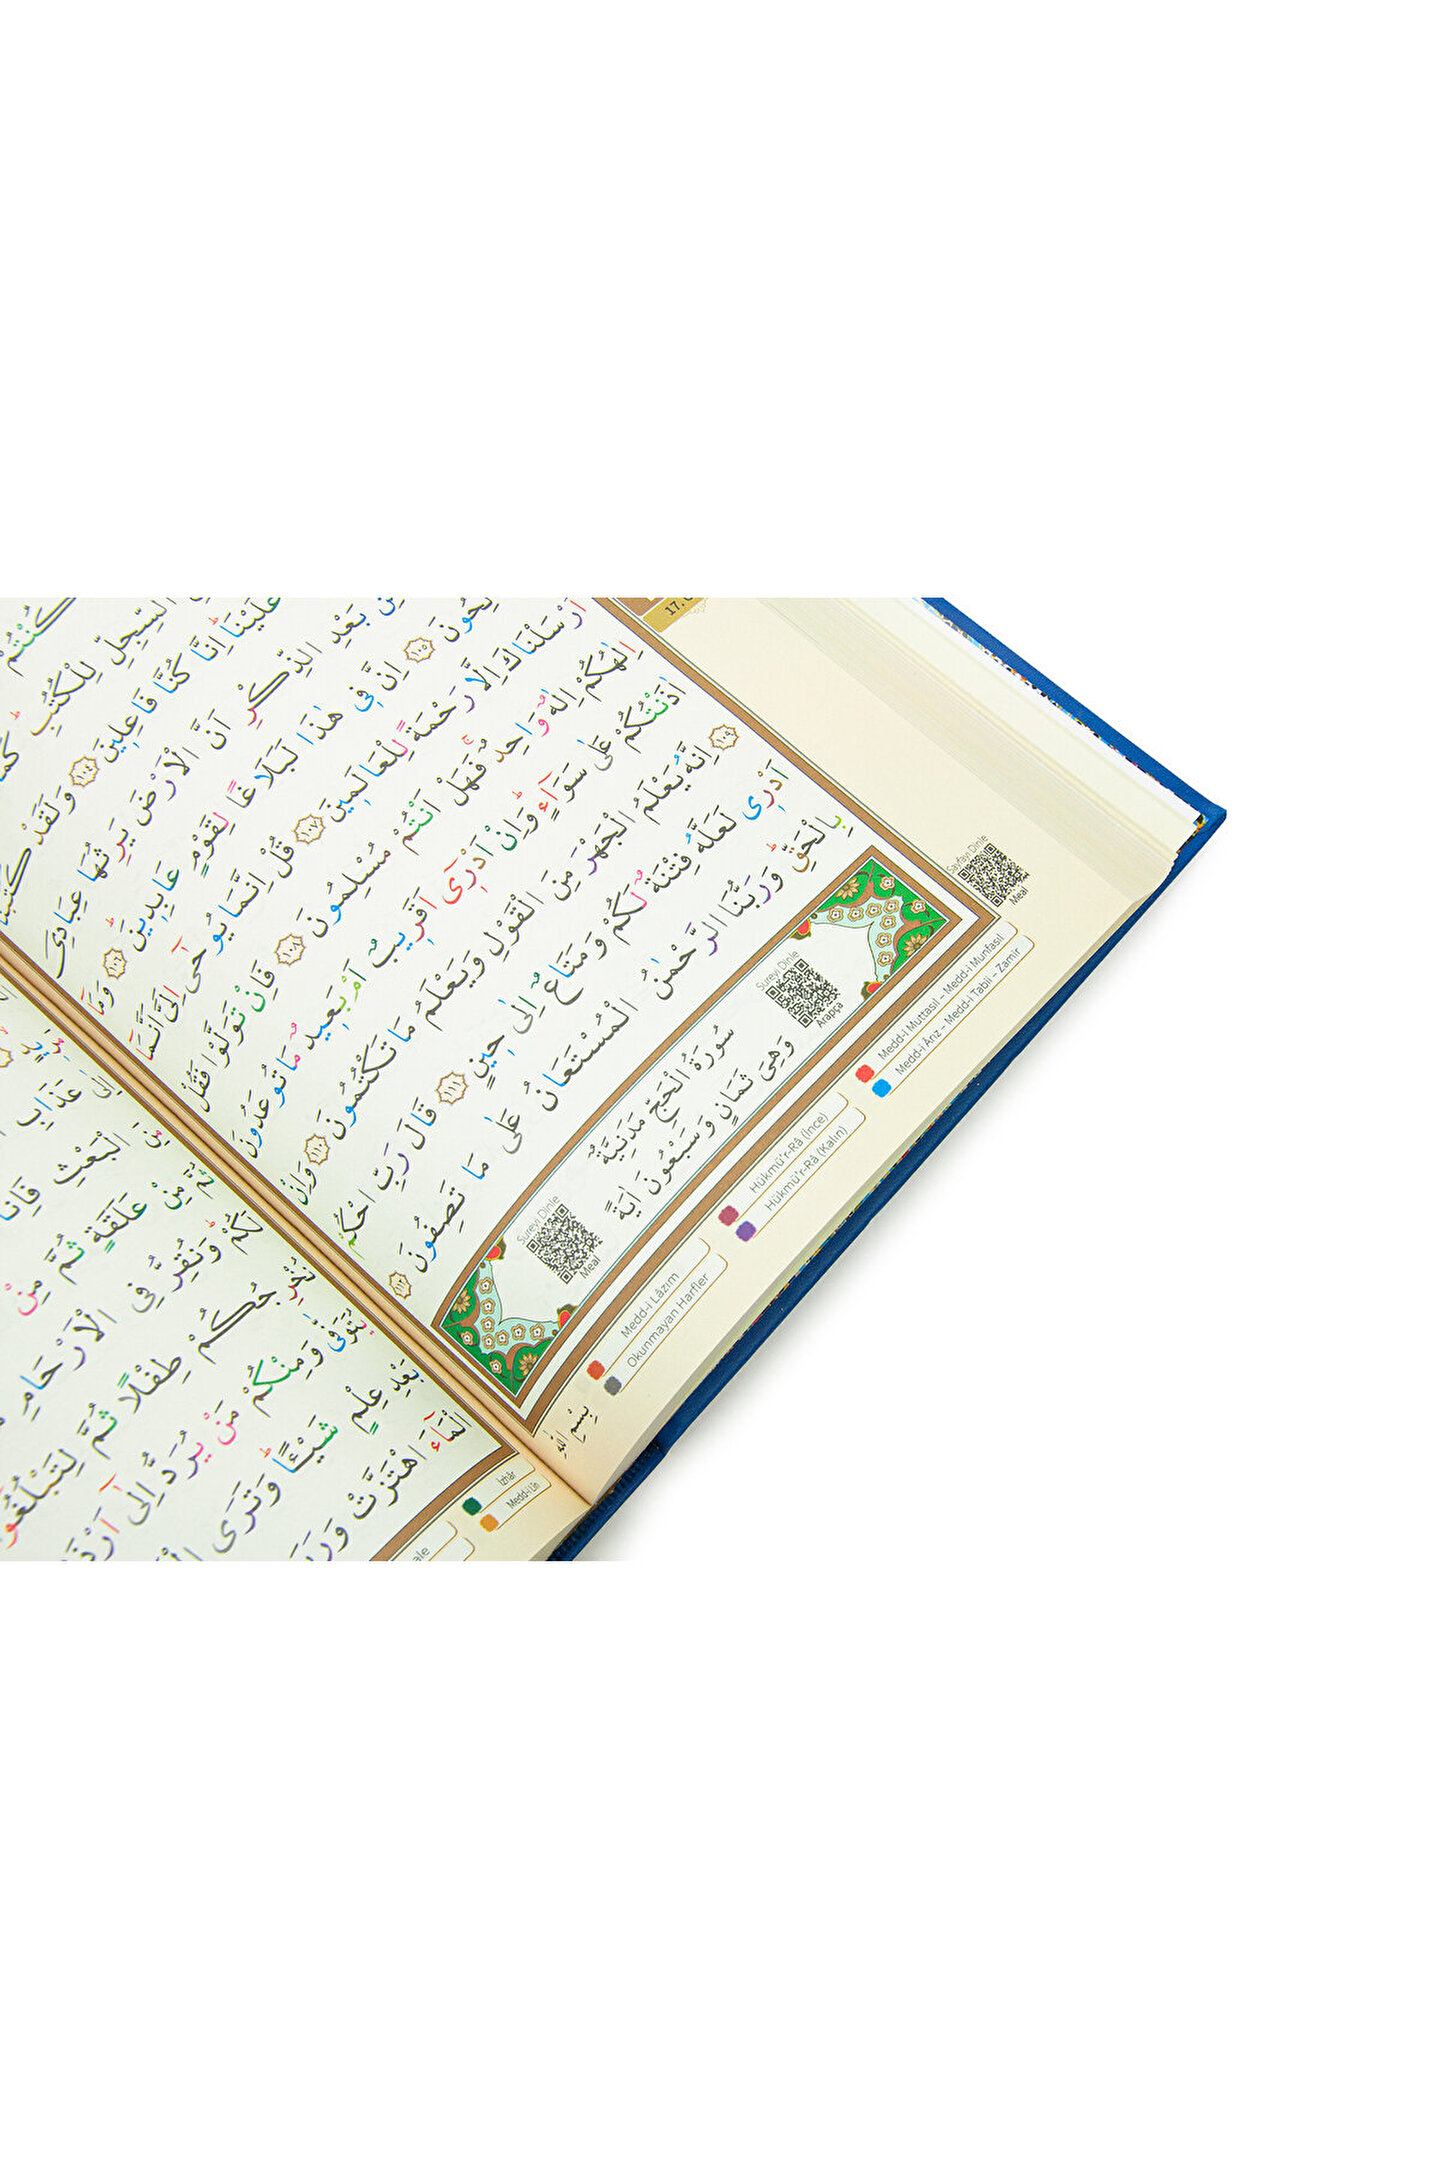 كُنْتُمْ
السِّجِلِّ لِلْكُتُبِ كَمَا
عَلَيْنَا اِنَّا كُنَّا فَاعِلِينَ ﴿١٠٤﴾ وَلَقَدْ كَتَبْنَا
بَعْدِ الذِّكْرِ اَنَّ الْاَرْضَ يَرِثُهَا عِبَادِىَ
﴿١٠٥﴾ اِنَّ فِى هٰذَا لَبَلَاغًا لِقَوْمٍ عَابِدِينَ ﴿١٠٦﴾ وَمَٓا
اَرْسَلْنَاكَ اِلَّا رَحْمَةً لِلْعَالَمِينَ ﴿١٠٧﴾ قُلْ اِنَّمَا يُوحٰٓى اِلَىَّ اَنَّمَٓا
اِلٰهُكُمْ اِلٰهٌ وَاحِدٌ فَهَلْ اَنْتُمْ مُسْلِمُونَ ﴿١٠٨﴾ فَاِنْ تَوَلَّوْا فَقُلْ
اٰذَنْتُكُمْ عَلٰى سَوَٓاءٍ وَاِنْ اَدْرِٓى اَقَرِيبٌ اَمْ بَعِيدٌ مَا تُوعَدُونَ
﴿١٠٩﴾ اِنَّهُ يَعْلَمُ الْجَهْرَ مِنَ الْقَوْلِ وَيَعْلَمُ مَا تَكْتُمُونَ ﴿١١٠﴾ وَاِنْ
اَدْرِى لَعَلَّهُ فِتْنَةٌ لَكُمْ وَمَتَاعٌ اِلٰى حِينٍ ﴿١١١﴾ قَالَ رَبِّ احْكُمْ
بِالْحَقِّ وَرَبُّنَا الرَّحْمٰنُ الْمُسْتَعَانُ عَلٰى مَا تَصِفُونَ ﴿١١٢﴾
Sureyi Dinle
Arapça
سُورَةُ الْحَجِّ مَدَنِيَّةٌ
وَهِىَ ثَمَانٍ وَسَبْعُونَ اٰيَةً
Sureyi Dinle
Meal
17.
Sayfayı Dinle
Meal
Medd-i Muttasıl - Medd-i Munfasıl
Medd-i Ârız - Medd-i Tabii - Zamir
Hükmü'r-Râ (İnce)
Hükmü'r-Râ (Kalın)
Medd-i Lâzım
Okunmayan Harfler
بِسْمِ اللّٰهِ
عَذَابِ
مِنَ الْبَعْثِ فَاِنَّا
ثُمَّ مِنْ عَلَقَةٍ ثُمَّ مِنْ
لَكُمْ وَنُقِرُّ فِى الْاَرْحَامِ
نُخْرِجُكُمْ طِفْلًا ثُمَّ لِتَبْلُغُٓوا
يُتَوَفّٰى وَمِنْكُمْ مَنْ يُرَدُّ اِلٰٓى اَرْذَلِ
بَعْدِ عِلْمٍ شَيْـًٔا وَتَرَى
الْمَٓاءَ اهْتَزَّتْ وَرَبَتْ
İzhâr
Medd-i Lîn